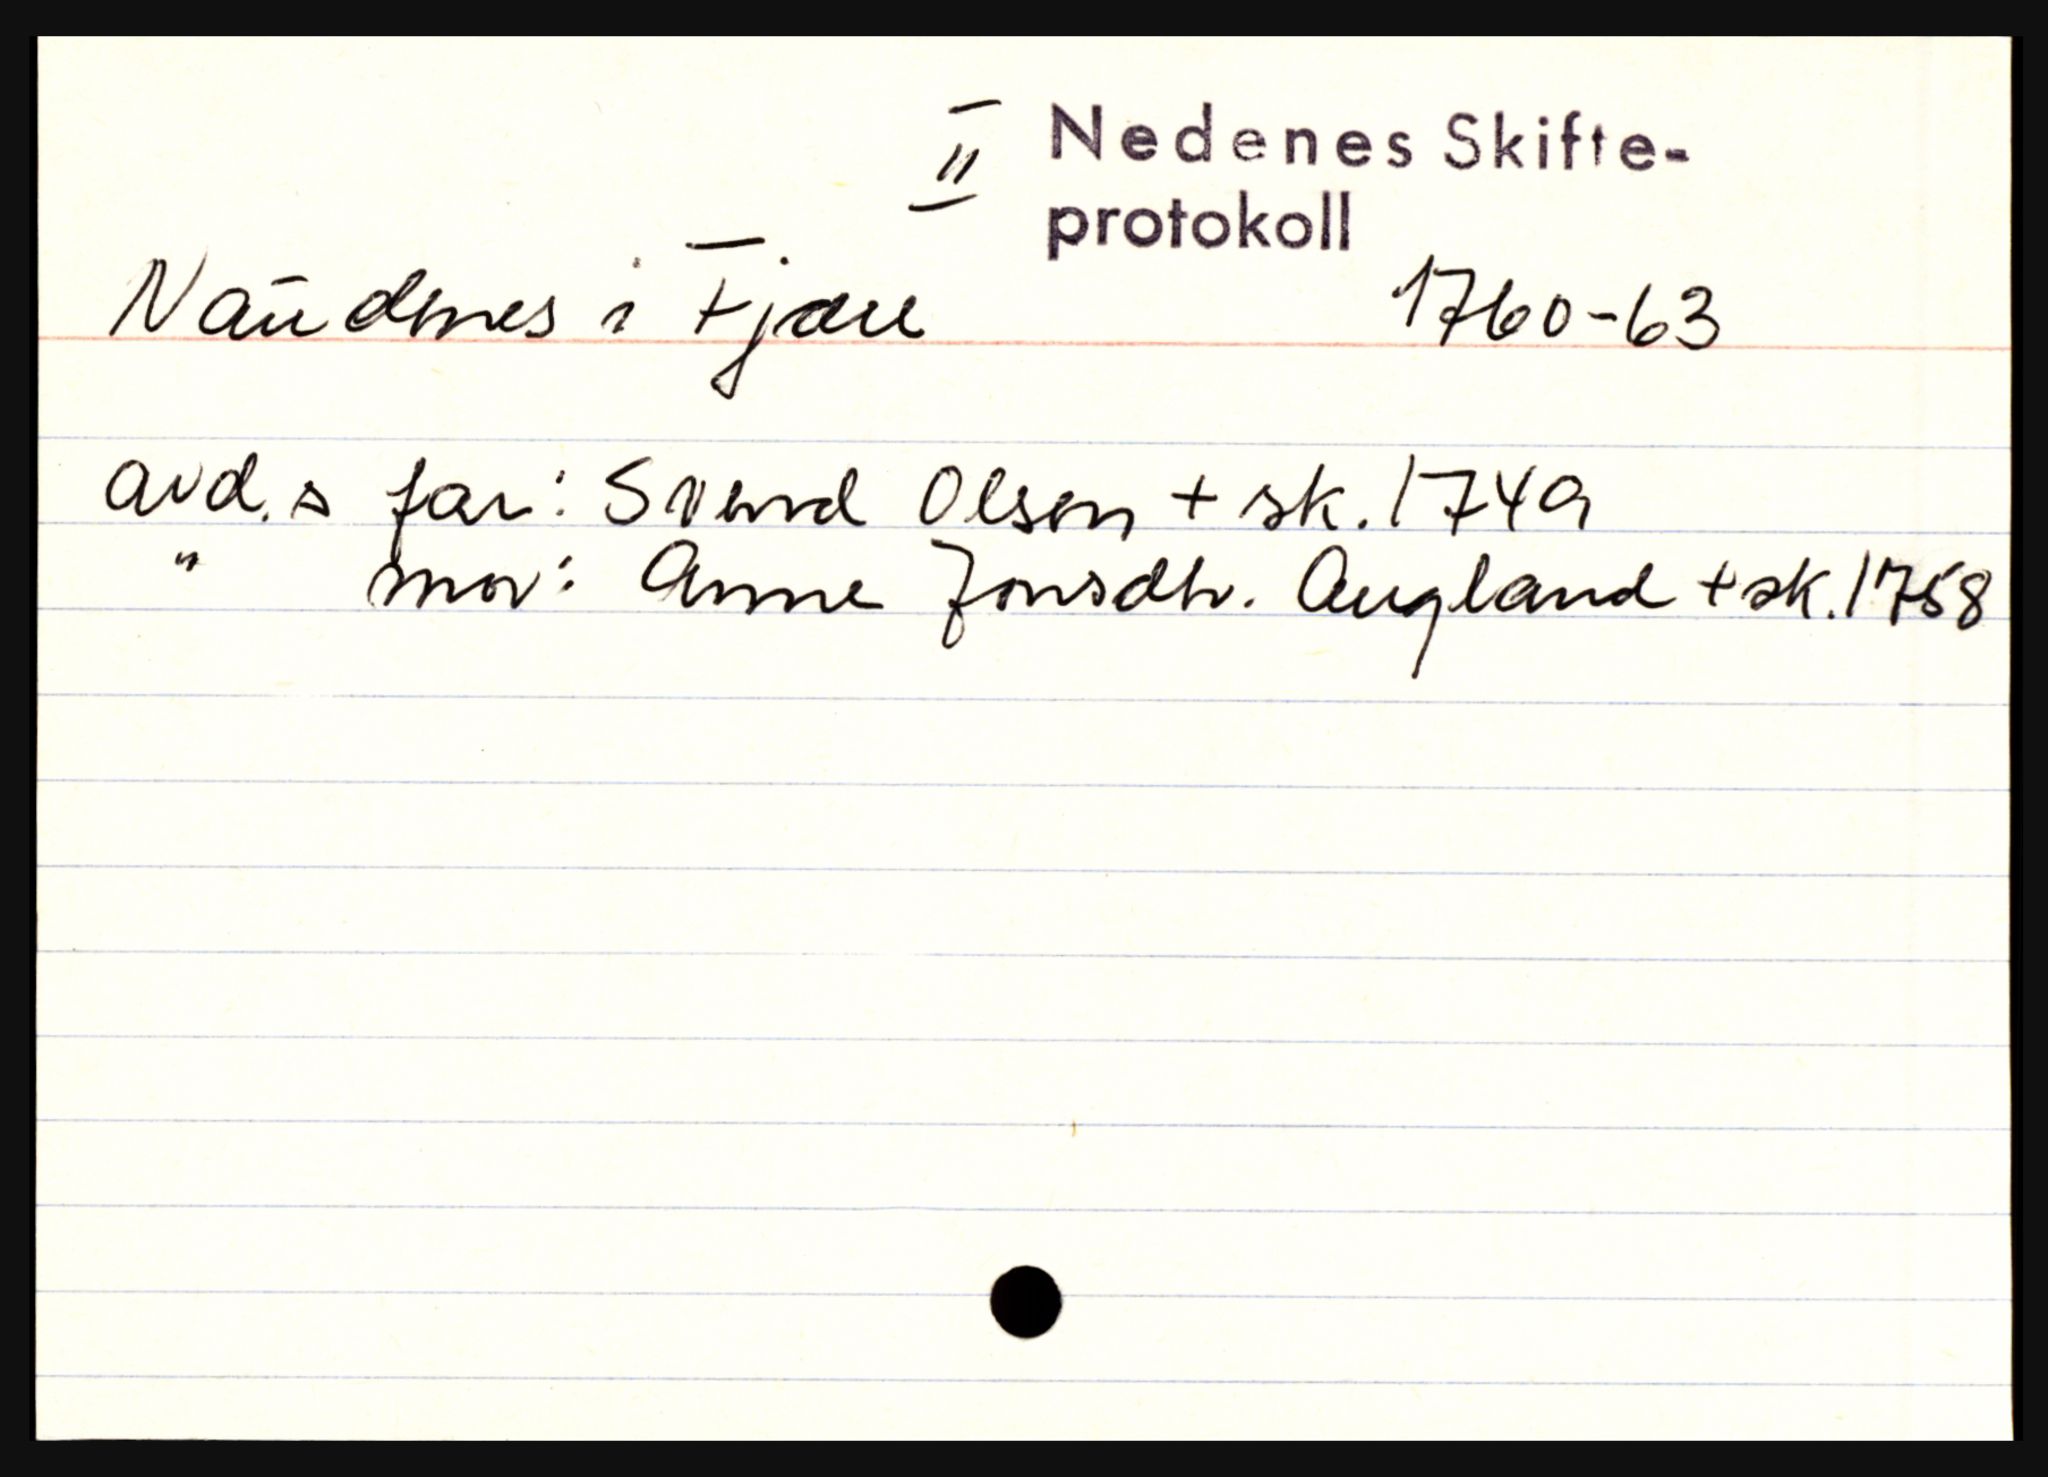 II Nedenes Skifte-
protokoll
Naudenes i Fjære 1760-63
avd.s far: Svend Olsen + sk. 1749
" mor: Anne Jonsdtr. Augland + sk. 1758